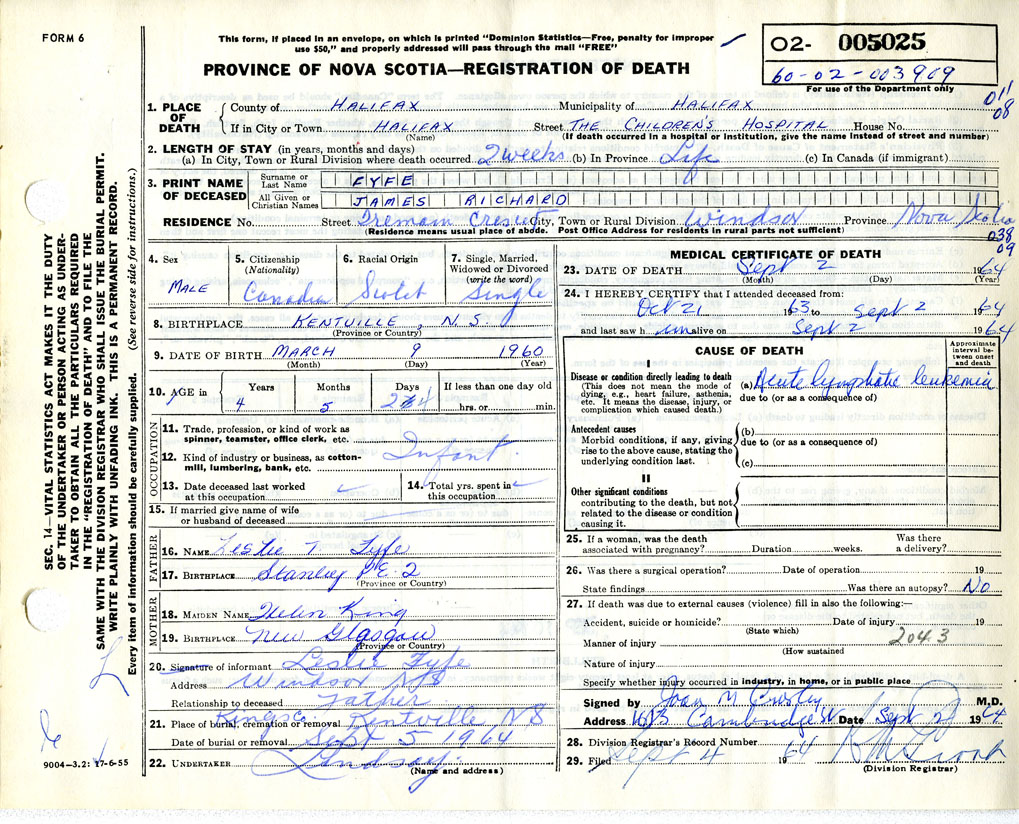 FORM 6
This form, if placed in an envelope, on which is printed "Dominion Statistics—Free, penalty for improper
use $50," and properly addressed will pass through the mail "FREE"
PROVINCE OF NOVA SCOTIA—REGISTRATION OF DEATH
O2- 005025
60-02-003909
For use of the Department only
011
08
1. PLACE OF DEATH
County of HALIFAX Municipality of HALIFAX
If in City or Town HALIFAX Street THE CHILDREN'S HOSPITAL House No.
(Name) (If death occurred in a hospital or institution, give the name instead of street and number)
2. LENGTH OF STAY (in years, months and days)
(a) In City, Town or Rural Division where death occurred 2 weeks (b) In Province Life (c) In Canada (if immigrant)
3. PRINT NAME OF DECEASED
Surname or Last Name FYFE
All Given or Christian Names JAMES RICHARD
RESIDENCE No. Street Tremain Crescent City, Town or Rural Division Windsor Province Nova Scotia
(Residence means usual place of abode. Post Office Address for residents in rural parts not sufficient)
038
09
4. Sex
MALE
5. Citizenship
(Nationality)
Canadian
6. Racial Origin
7. Single, Married,
Widowed or Divorced
(write the word)
Single
8. BIRTHPLACE KENTVILLE, N.S.
(Province or Country)
9. DATE OF BIRTH MARCH 9 1960
(Month) (Day) (Year)
10. AGE in Years Months Days If less than one day old
4 5 24 hrs. or min.
OCCUPATION
11. Trade, profession, or kind of work as
spinner, teamster, office clerk, etc.
12. Kind of industry or business, as cotton-
mill, lumbering, bank, etc.
Infant
13. Date deceased last worked
at this occupation
14. Total yrs. spent in
this occupation
15. If married give name of wife
or husband of deceased
FATHER
16. NAME Leslie T. Fyfe
17. BIRTHPLACE Stanley P.E.I
(Province or Country)
MOTHER
18. MAIDEN NAME Helen King
19. BIRTHPLACE New Glasgow
(Province or Country)
20. Signature of informant Leslie Fyfe
Address Windsor NS
Relationship to deceased Father
21. Place of burial, cremation or removal Kings Co. Kentville NS
Date of burial or removal Sept 5 1964
22. UNDERTAKER Lindsay
(Name and address)
MEDICAL CERTIFICATE OF DEATH
23. DATE OF DEATH Sept 2 1964
(Month) (Day) (Year)
24. I HEREBY CERTIFY that I attended deceased from:
Oct 21 1963 to Sept 2 1964
and last saw him alive on Sept 2 1964
CAUSE OF DEATH
Approximate
interval be-
tween onset
and death
I
Disease or condition directly leading to death
(This does not mean the mode of
dying, e.g., heart failure, asthenia,
etc. It means the disease, injury, or
complication which caused death.)
(a) Acute lymphatic leukemia
due to (or as a consequence of)
Antecedent causes
Morbid conditions, if any, giving
rise to the above cause, stating the
underlying condition last.
(b)
due to (or as a consequence of)
(c)
II
Other significant conditions
contributing to the death, but not
related to the disease or condition
causing it.
25. If a woman, was the death
associated with pregnancy? Duration weeks. Was there
a delivery?
26. Was there a surgical operation? Date of operation 19
State findings Was there an autopsy? No
27. If death was due to external causes (violence) fill in also the following:—
Accident, suicide or homicide? Date of injury 19
(State which)
2043
Manner of injury
(How sustained
Nature of injury
Specify whether injury occurred in industry, in home, or in public place
Signed by Joan M Crosby M.D.
Address Cambridge St Date Sept 2 1964
28. Division Registrar's Record Number
29. Filed Sept 4 1964
(Division Registrar)
SEC. 14—VITAL STATISTICS ACT MAKES IT THE DUTY
OF THE UNDERTAKER OR PERSON ACTING AS UNDER-
TAKER TO OBTAIN ALL THE PARTICULARS REQUIRED
IN THE "REGISTRATION OF DEATH" AND TO FILE THE
SAME WITH THE DIVISION REGISTRAR WHO SHALL ISSUE THE BURIAL PERMIT.
WRITE PLAINLY WITH UNFADING INK. THIS IS A PERMANENT RECORD.
Every item of information should be carefully supplied. (See reverse side for instructions.)
9004—3.2: 17-6-55